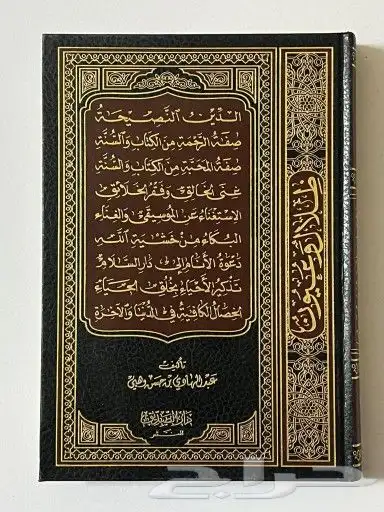 الدين النصيحة
صفة الرحمة من الكتاب والسنة
صفة المحبة من الكتاب والسنة
غنى الخالق وفقر الخلائق
الاستغناء عن الموسيقى والغناء
البكاء من خشية الله
دعوة الأنام إلى دار السلام
تذكير الأحياء بخلق الحياء
الخصال الكافية في الدنيا والآخرة
تأليف
عبد الهادي بن حسن وهبي
ظلال وعيون
حراج